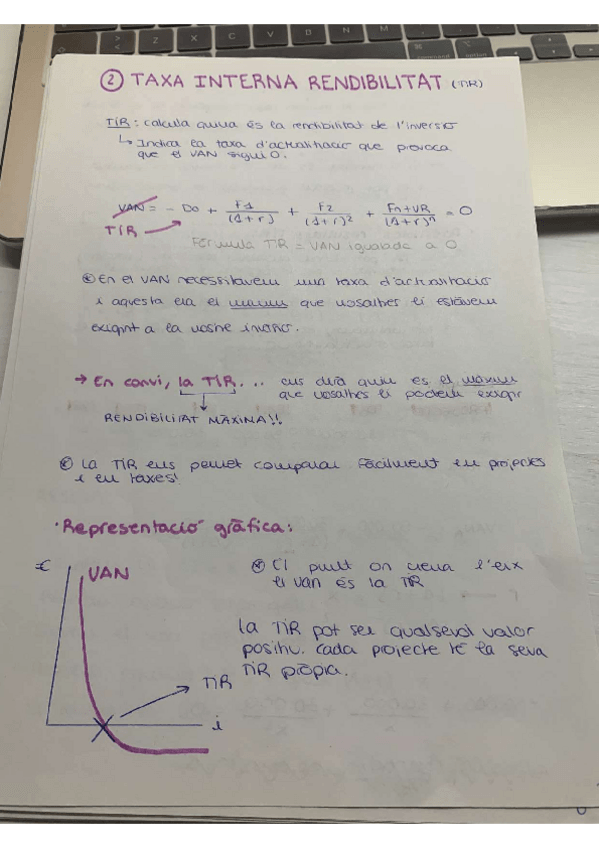 ② TAXA INTERNA RENDIBILITAT (TIR)
TIR: calcula quina és la rendibilitat de l'inversió
↳ Indica la taxa d'actualització que provoca
que el VAN sigui 0.
VAN = - D0 + F1/(1+r) + F2/(1+r)² + Fn+VR/(1+r)ⁿ = 0
TIR
Fórmula TIR = VAN igualada a 0
En el VAN necessitavem una taxa d'actualització
i aquesta era el que nosaltres li estàvem
exigint a la nostre inversió.
→ En canvi, la TIR... ens dirà quin és el màxim
que nosaltres li podem exigir
RENDIBILITAT MÀXINA!!
La TIR ens permet comparar fàcilment en projectes
i en taxes!
·Representació gràfica:
€
VAN
El punt on creua l'eix
el van és la TIR
La TIR pot ser qualsevol valor
positiu. cada projecte té la seva
TIR pròpia.
TIR
i